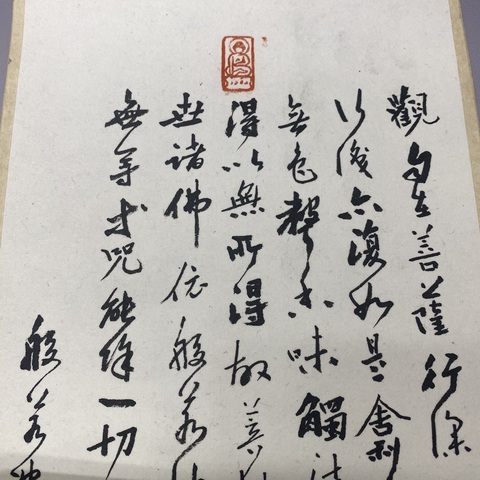 觀自在菩薩行深
行識亦復如是舍利
無色聲香味觸法
得以無所得故菩
世諸佛依般若
無等等咒能除一切
般若波